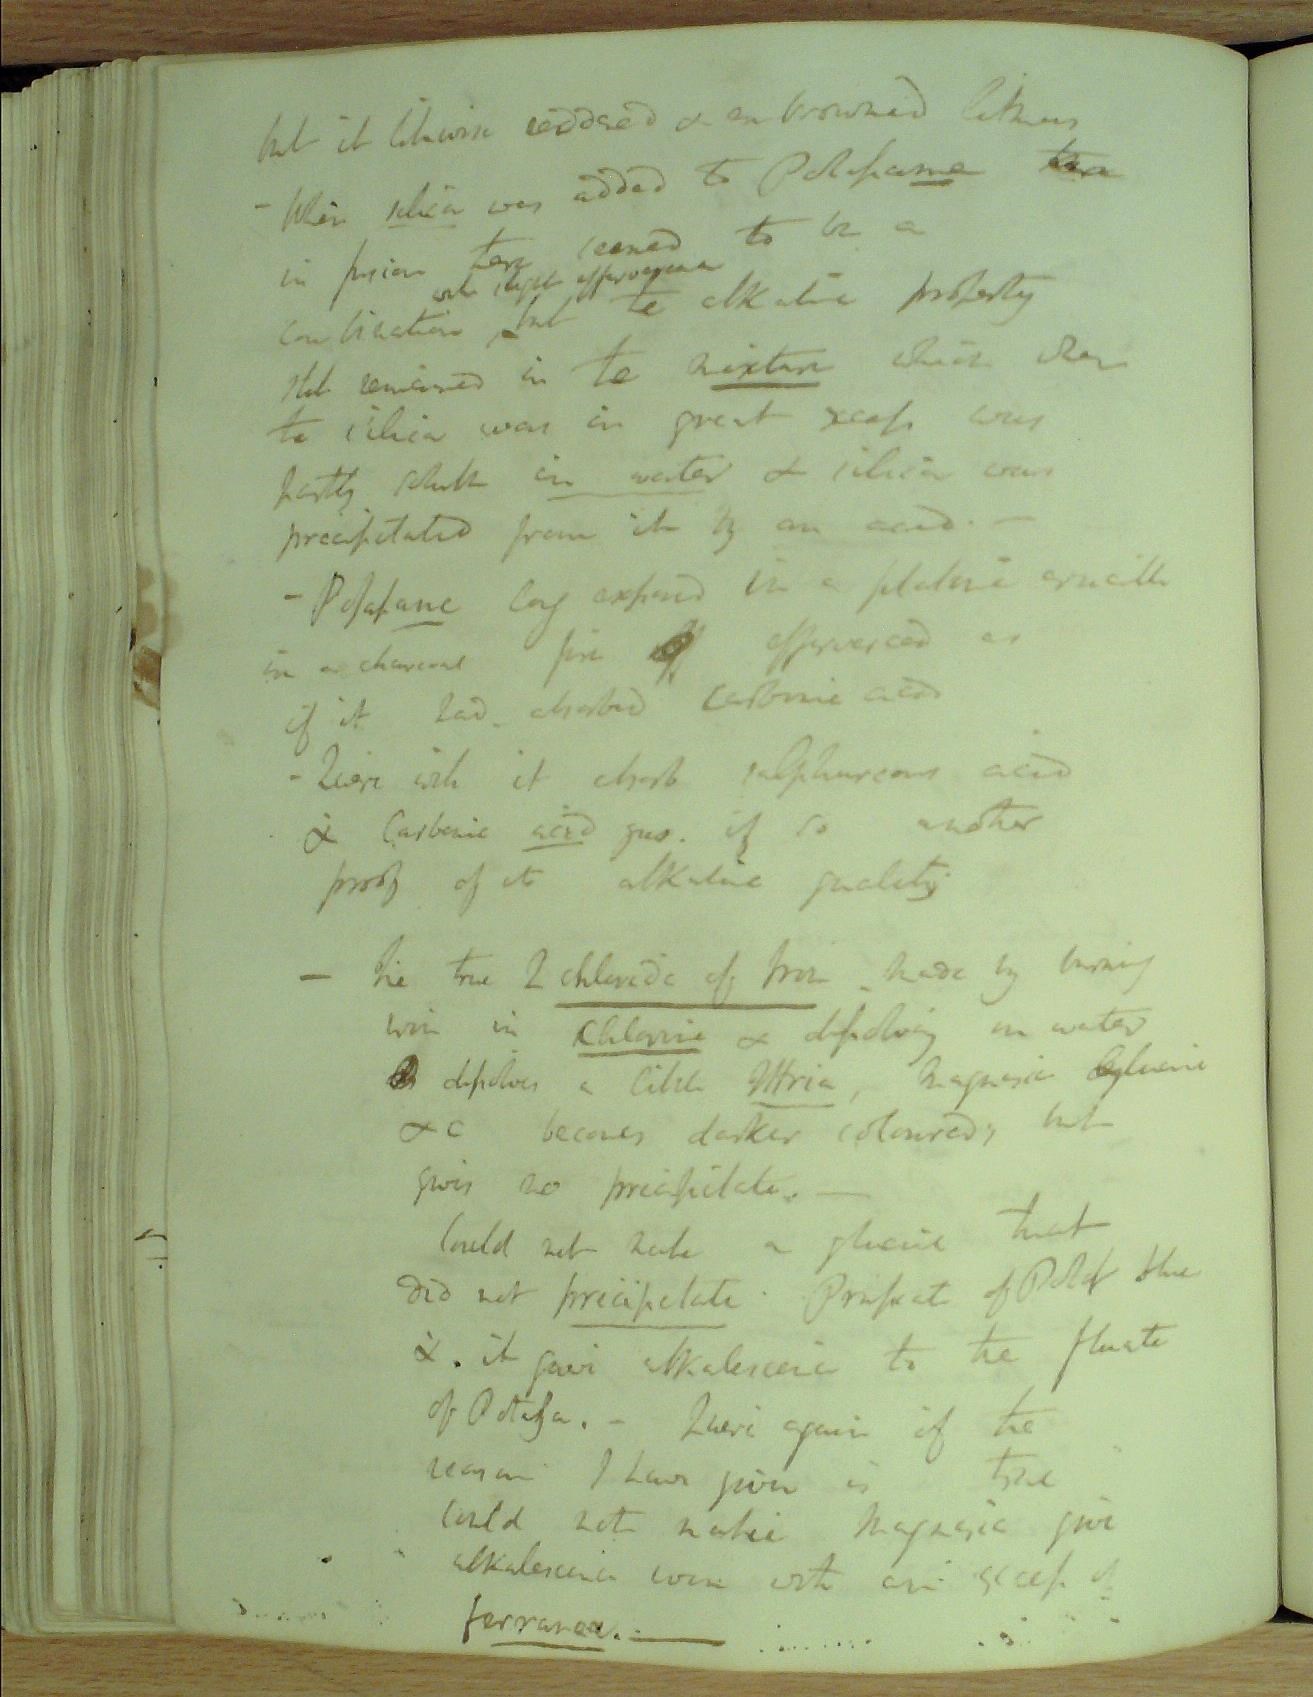 but it likewise reddened & embrowned litmus
- When silica was added to Potassane
in fusion there seemed to be a
with slight effervescence
combination, but te alkaline property
still remained in te mixture which when
te silica was in great excess was
partly soluble in water & silica was
precipitated from it by an acid. -
- Potassane long exposed in a platina crucible
in a charcoal fire effervesced as
if it had absorbed carbonic acid
- Quere will it absorb sulphureous acid
& Carbonic acid gas. if so another
proof of its alkaline quality
- The true chloride of Iron made by burning
iron in chlorine & dissolving in water
dissolves a little Yttria, Magnesia Glucine
&c becomes darker coloured, but
gives no precipitate. —
Could not make a glucine that
did not precipitate. Prussiate of Potash blue
&. it gave alkalescence to the fluate
of Potassa. - Quere again if the
reason I have given is true
could not make Magnesia give
alkalescence even with an excess of
ferranea. —